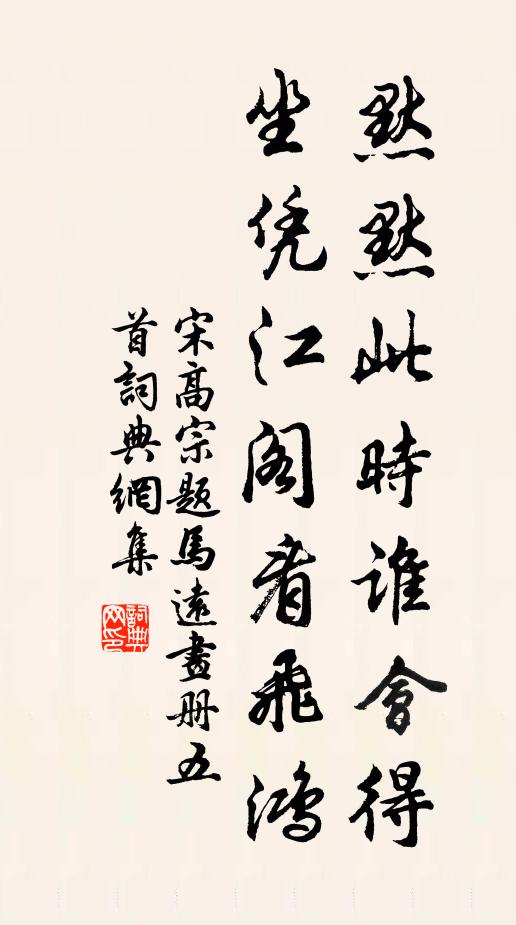 默默此時誰會得
坐凭江阁看飛鴻
宋髙宗題馬遠畫册五
首詞典網集
詞典
网印